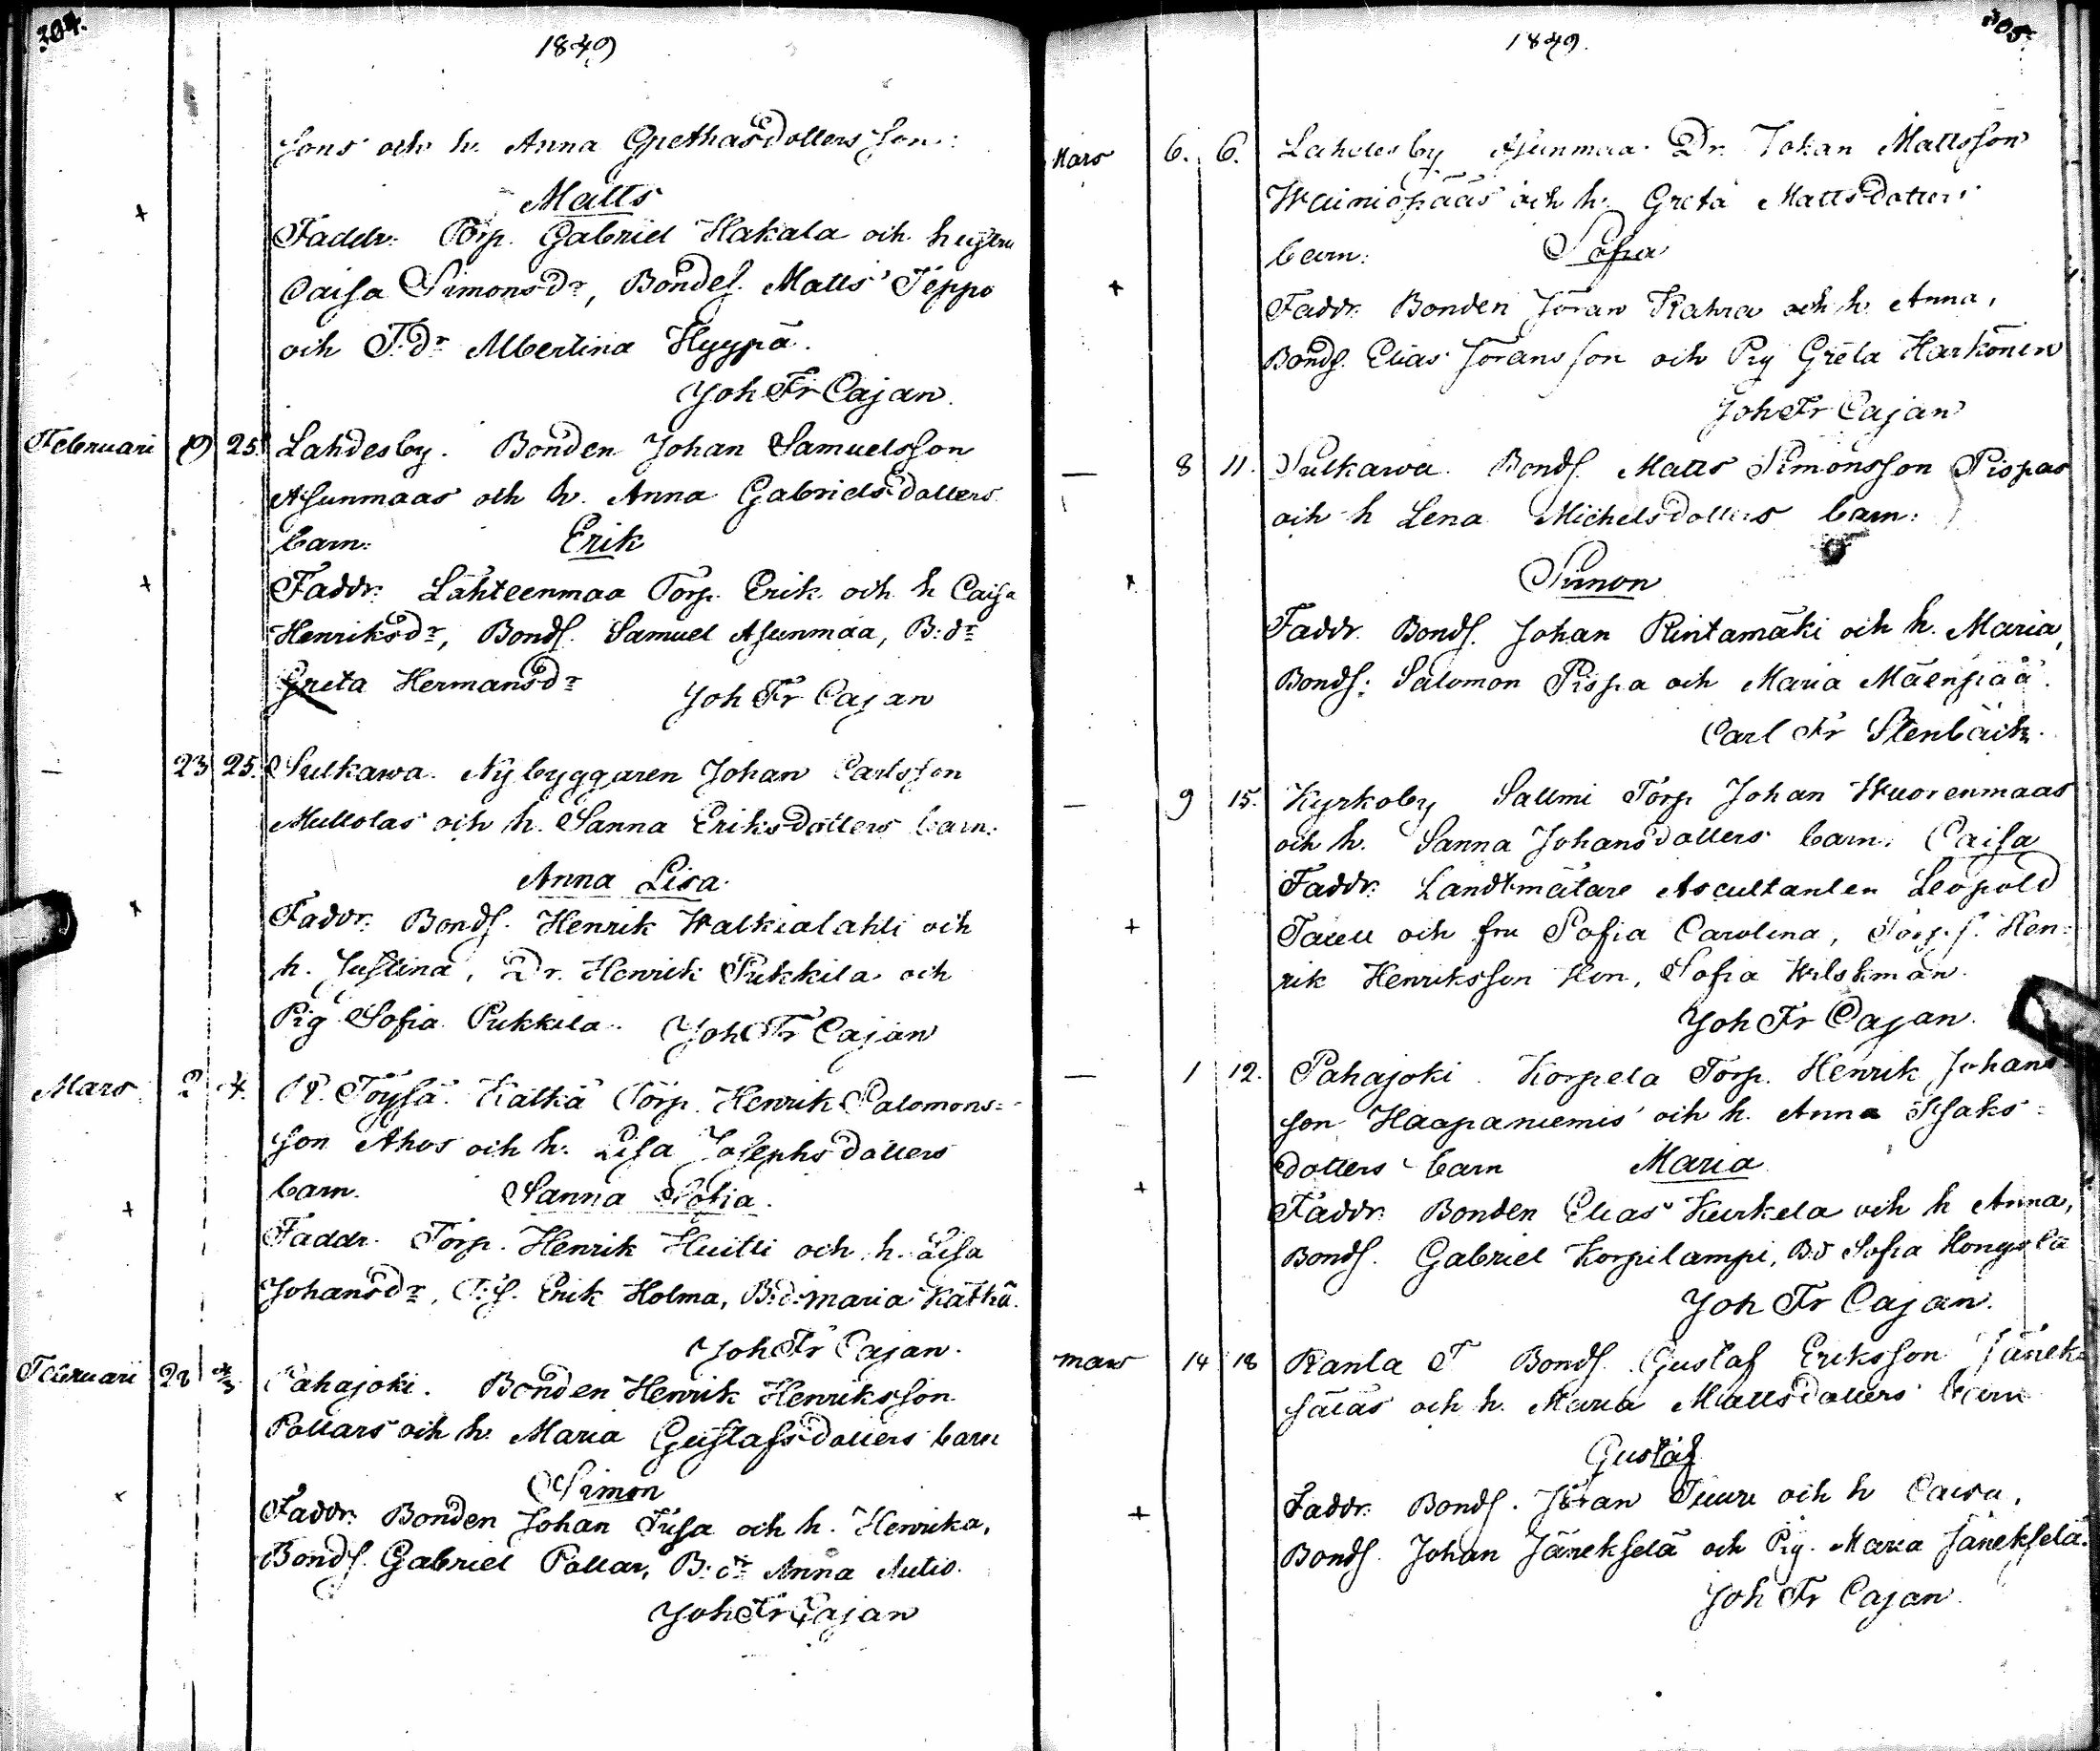 304.
1849
sons och h. Anna Grethasdotters son:
Matts
+
Faddr. Torp. Gabriel Hakala och hustru
Caisa Simonsdr, Bondes. Matts Seppo
och T.dr Albertina Hyypä.
Joh Fr Cajan.
Februari 19 25. Lahdesby. Bonden Johan Samuelsson
Asunmaas och h. Anna Gabrielsdotters
barn: Erik
+ Faddr. Lähteenmaa Torp. Erik och h Caisa
Henriksdr, Bonds. Samuel Asunmaa, B:dr
Greta Hermansdr Joh Fr Cajan
— 23 25. Sulkawa. Nybyggaren Johan Carlsson
Mullolas och h. Sanna Eriksdotters barn:
Anna Lisa.
+ Faddr. Bonds. Henrik Walkialahti och
h. Justina, Dr. Henrik Pukkila och
Pig Sofia Pukkila. Joh Fr Cajan
Mars 2 4. N. Töysä. Kätkä Torp. Henrik Salomons=
son Ahos och h. Lisa Josephsdotters
barn. Sanna Sofia.
+ Faddr. Torp. Henrik Huitti och h. Lisa
Johansdr, T:s. Erik Holma, B:d: Maria Kätkä.
Joh Fr Cajan.
Februari 28 4/3 Pahajoki. Bonden Henrik Henriksson
Pollars och h. Maria Gustafsdotters barn
Simon
+ Faddr. Bonden Johan Tusa och h. Henrika,
Bonds. Gabriel Pollar, B:dr Anna Autio.
Joh Fr Cajan
305.
1849.
Mars 6. 6. Lahdesby Asunmaa Dr. Johan Mattsson
Wainiopääs och h. Greta Mattsdotters
barn: Sofia
+ Faddr. Bonden Jöran Rahra och h. Anna,
Bonds. Elias Joransson och Pig Greta Harkönen
Joh Fr Cajan
— 8 11. Sulkawa. Bonds. Matts Simonsson Pispas
och h Lena Michelsdotters barn:
Simon
+ Faddr. Bonds. Johan Rintamäki och h. Maria,
Bonds: Salomon Pispa och Maria Mäenpää.
Carl Fr Stenbäck.
— 9 15. Kyrkoby Sallmi Torp Johan Wuorenmaas
och h. Sanna Johansdotters barn: Caisa
Faddr. Landtmätare Ascultanten Leopold
+ och fru Sofia Carolina, Torp.s. Hen=
rik Henriksson Hon, Sofia Wilskman.
Joh Fr Cajan.
— 1 12. Pahajoki. Korpela Torp. Henrik Johans
son Haapaniemis och h. Anna Isaks=
dotters barn Maria
+ Faddr. Bonden Elias Kurkela och h Anna,
Bonds. Gabriel Korpilampi, B.d Sofia
Joh Fr Cajan.
mars 14 18 Ranta T Bonds. Gustaf Eriksson Jänek=
säläs och h. Maria Mattsdotters barn
Gustaf
+ Faddr. Bonds. Jöran Tuuri och h Caisa,
Bonds. Johan Jänekselä och Pig. Maria Jänekselä.
Joh Fr Cajan.